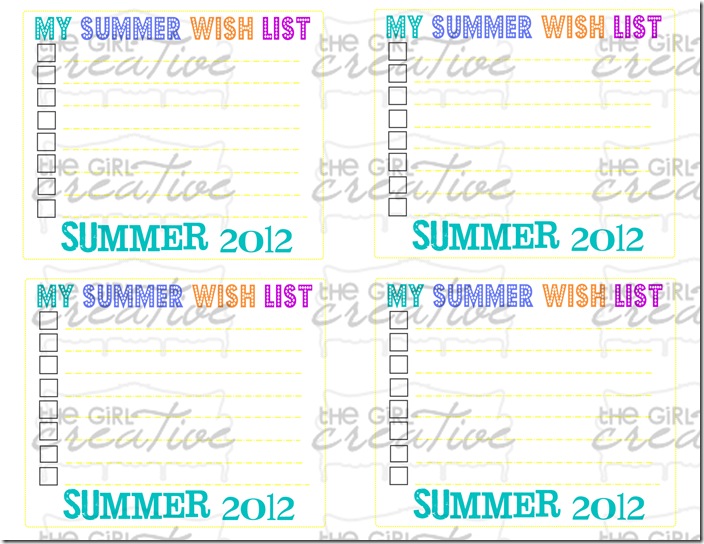 MY SUMMER WISH LIST
SUMMER 2012
MY SUMMER WISH LIST
SUMMER 2012
MY SUMMER WISH LIST
SUMMER 2012
MY SUMMER WISH LIST
SUMMER 2012
THE GIRL
creative
THE GIRL
creative
THE GIRL
creative
THE GIRL
creative
THE GIRL
creative
THE GIRL
creative
THE GIRL
creative
THE GIRL
creative